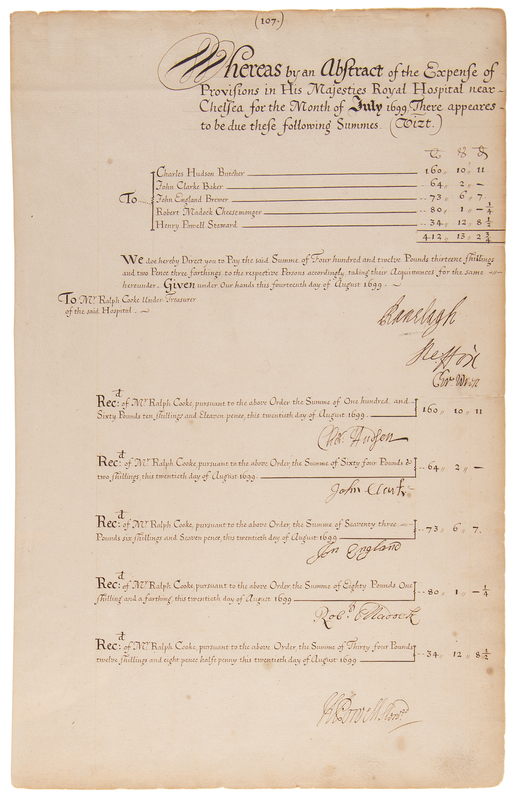 (107.)
Whereas by an Abstract of the Expense of
Provisions in His Majesties Royal Hospital near
Chelsea for the Month of July 1699, There appeares
to be due these following Summes (Vizt.)
£ S D
Charles Hudson Butcher 160 10 11
John Clarke Baker 64 2 -
To John England Brewer 73 6 7
Robert Madock Cheesemonger 80 1 - 1/4
Henry Powell Steward 34 12 8 1/2
412 13 2 3/4
We doe hereby Direct you to Pay the said Summe of Four hundred and twelve Pounds thirteene shillings
and two Pence three farthings to the respective Persons accordingly, taking their Acquittances for the same
hereunder. Given under our Hands this fourteenth day of August 1699.
To Mr. Ralph Cooke Under-Treasurer
of the said Hospital.
Ranelagh
Ste: Fox
Chr Wren
Recd: of Mr. Ralph Cooke, pursuant to the above Order, the Summe of One hundred, and
Sixty Pounds ten shillings and Eleaven pence, this twentieth day of August 1699. 160 10 11
Cha: Hudson
Recd: of Mr. Ralph Cooke, pursuant to the above Order, the Summe of Sixty four Pounds &
two shillings, this twentieth day of August 1699. 64 2 -
John Clark
Recd: of Mr. Ralph Cooke, pursuant to the above Order, the Summe of Seaventy three
Pounds six shillings and Seaven pence, this twentieth day of August 1699 73 6 7.
Jon England
Recd: of Mr. Ralph Cooke, pursuant to the above Order the Summe of Eighty Pounds One
shilling and a farthing, this twentieth day of August 1699 80 1 - 1/4
Robt Maddock
Recd: of Mr. Ralph Cooke, pursuant to the above Order, the Summe of Thirty four Pounds
twelve shillings and eight pence halfe penny this twentieth day of August 1699 34 12 8 1/2
H: Powell Stewd.